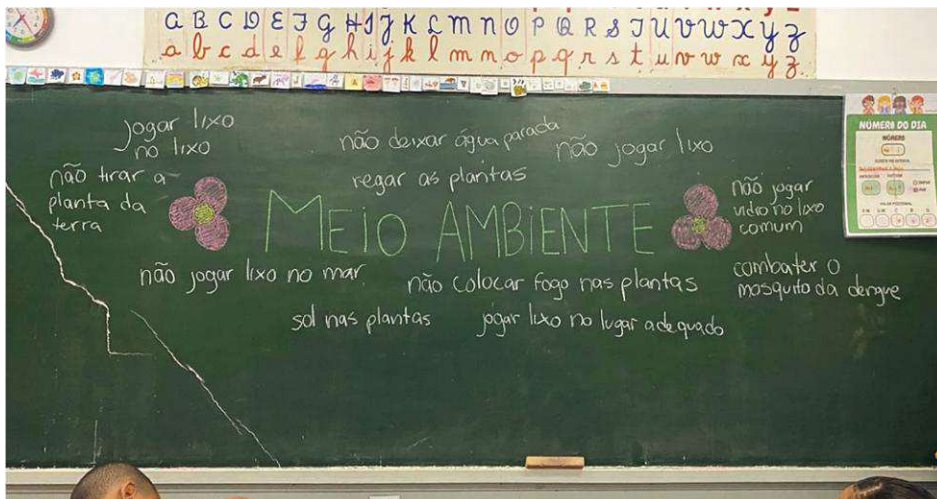 a B C D E F G H I J K L m n O P Q R S T U V W X Y Z
a b c d e f g h i j k l m n o p q r s t u v w x y z
jogar lixo
no lixo
não deixar água parada
não jogar lixo
não tirar a
planta da
terra
regar as plantas
não jogar
vidro no lixo
comum
MEIO AMBIENTE
não jogar lixo no mar
não colocar fogo nas plantas
combater o
mosquito da dengue
sol nas plantas
jogar lixo no lugar adequado
NÚMERO DO DIA
NÚMERO